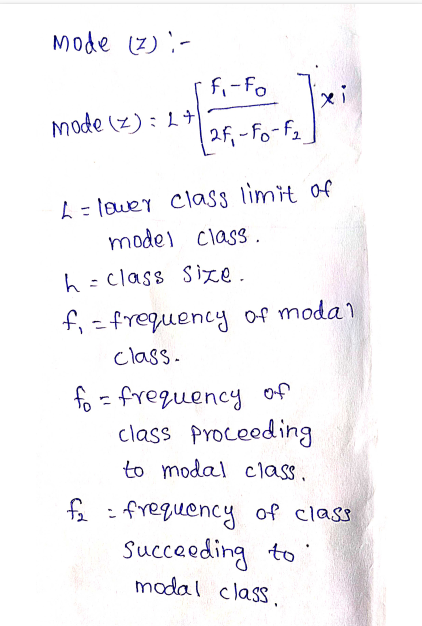 Mode (z) :-
mode (z) = L + [ f₁ - f₀ / 2f₁ - f₀ - f₂ ] × i
L = lower class limit of
model class.
h = class size.
f₁ = frequency of modal
class.
f₀ = frequency of
class proceeding
to modal class.
f₂ = frequency of class
Succeeding to
modal class.